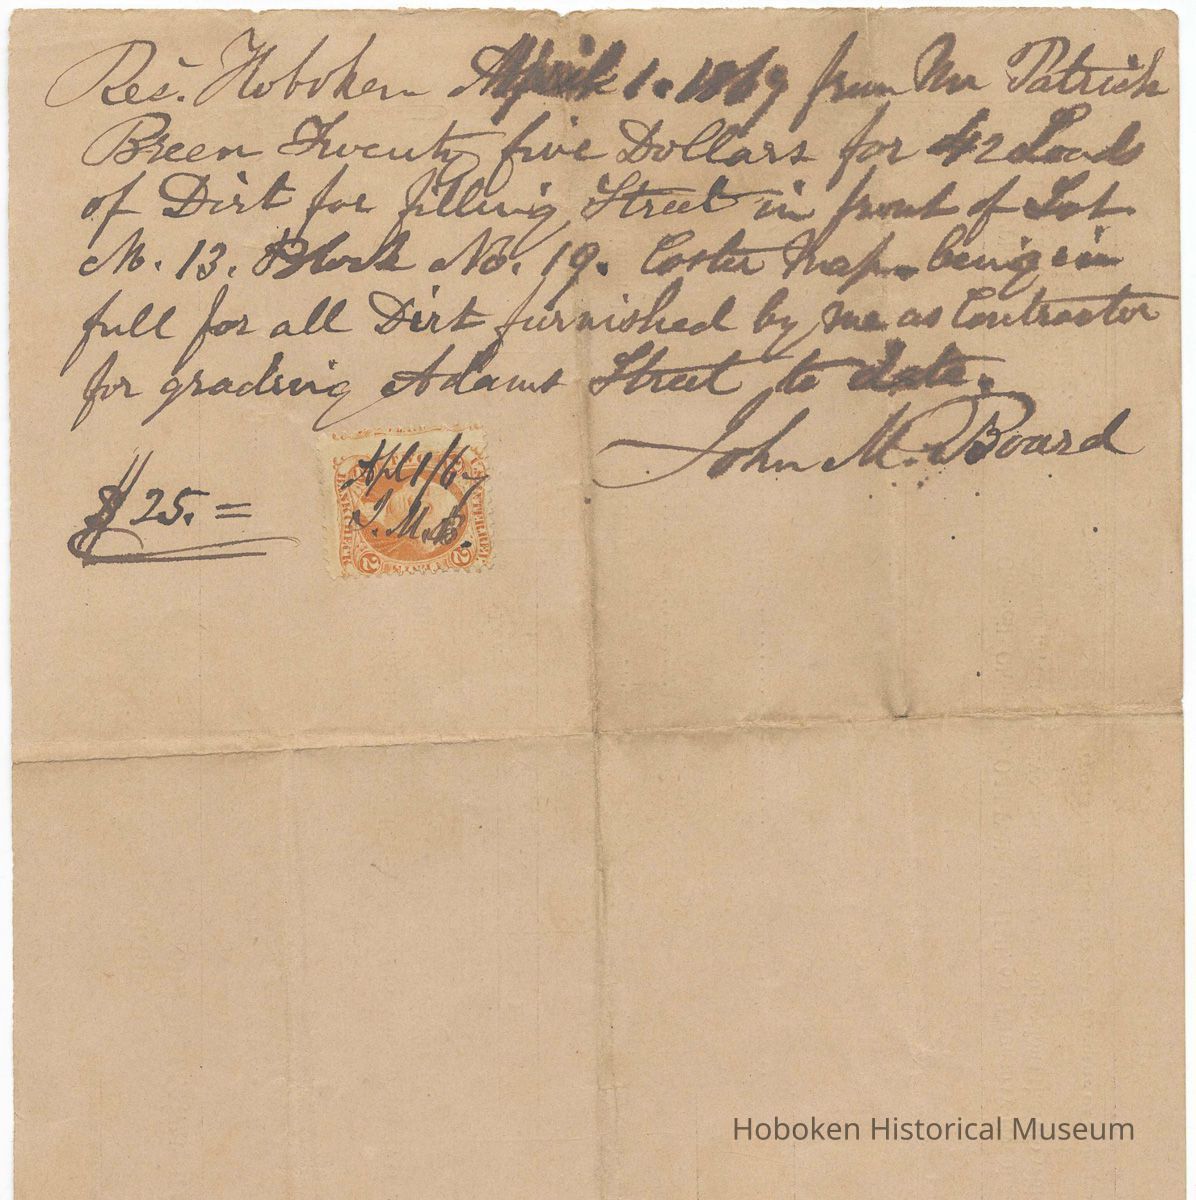 Rec. Hoboken April 1. 1869 from Mr Patrick
Breen Twenty five Dollars for 42 Loads
of Dirt for filling Street in front of Lot
No. 13. Block No. 19. Coster Map. being in
full for all Dirt furnished by me as Contractor
for grading Adams Street to date.
John M. Board
$25.=
Apl 1/69
J.M.B.
INTER. REV.
2 CENTS 2
Hoboken Historical Museum